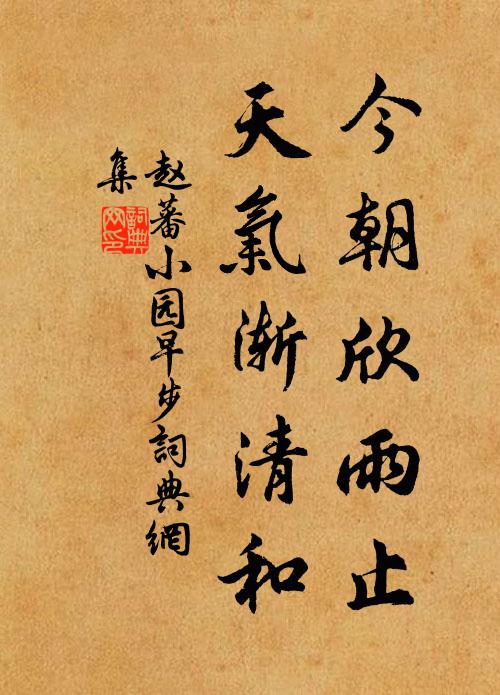 今朝欣雨止
天氣渐清和
赵蕃小园早步詞典網
集
詞典
网印